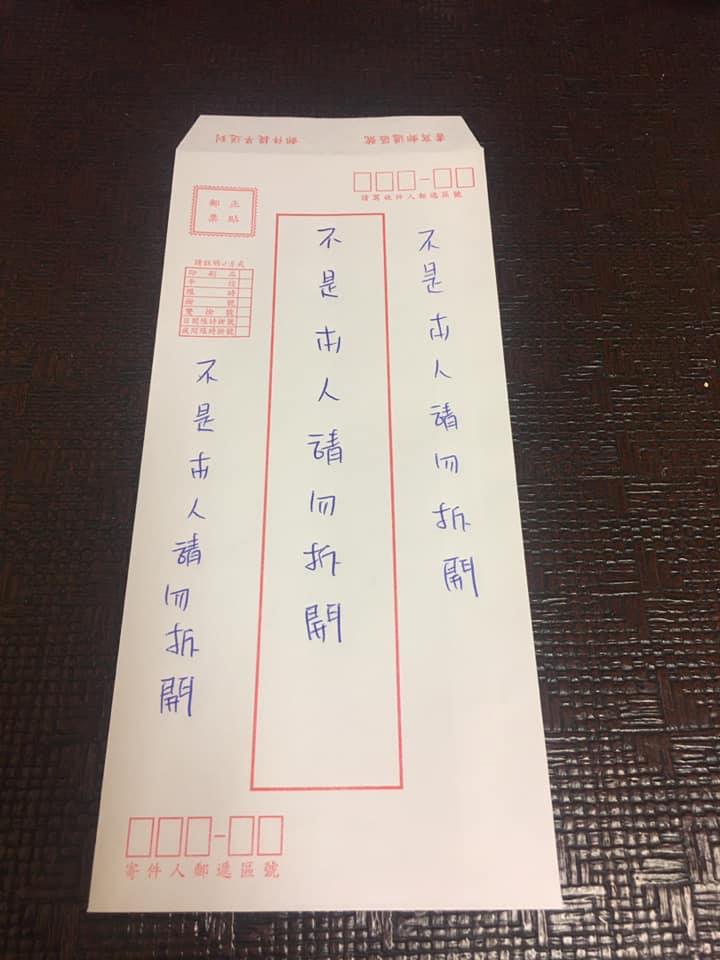 書寫郵遞區號 郵件提早送到
請寫收件人郵遞區號
不是本人請勿拆開
不是本人請勿拆開
正貼郵票
請註明✓方式
印刷品
平信
限時
掛號
雙掛號
日間限時掛號
夜間限時掛號
不是本人請勿拆開
寄件人郵遞區號